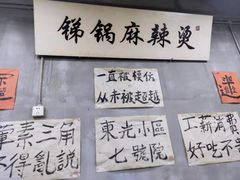 锑锅麻辣烫
一直被模仿
从未被超越
荤素三角
不得亂說
東光小區
七號院
工薪消費
好吃不